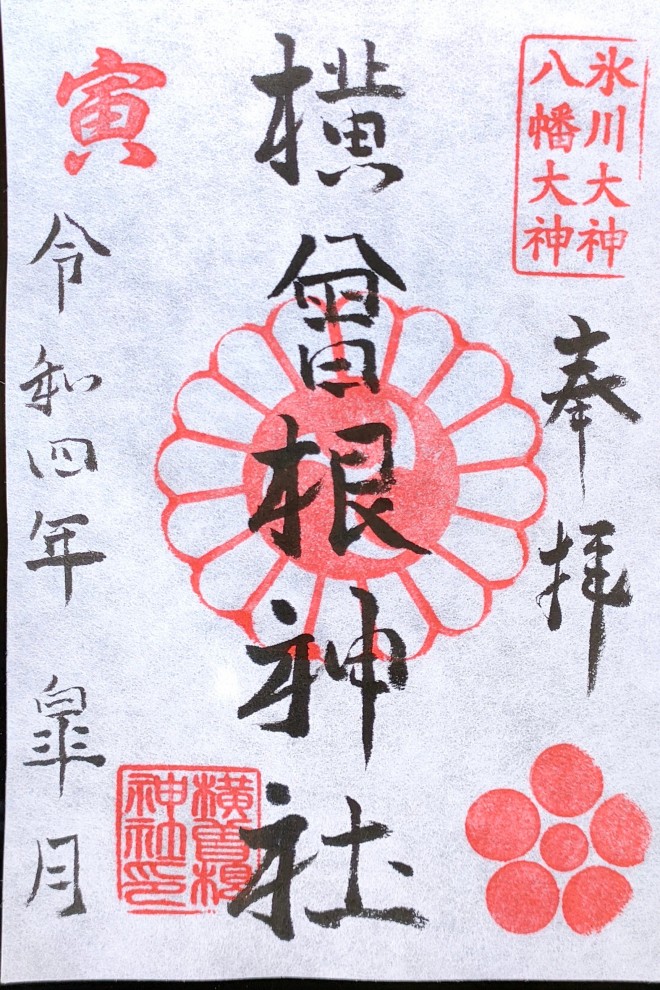 氷川大神
八幡大神
奉拝
横曾根神社
横曽根
神社印
寅
令和四年 皐月